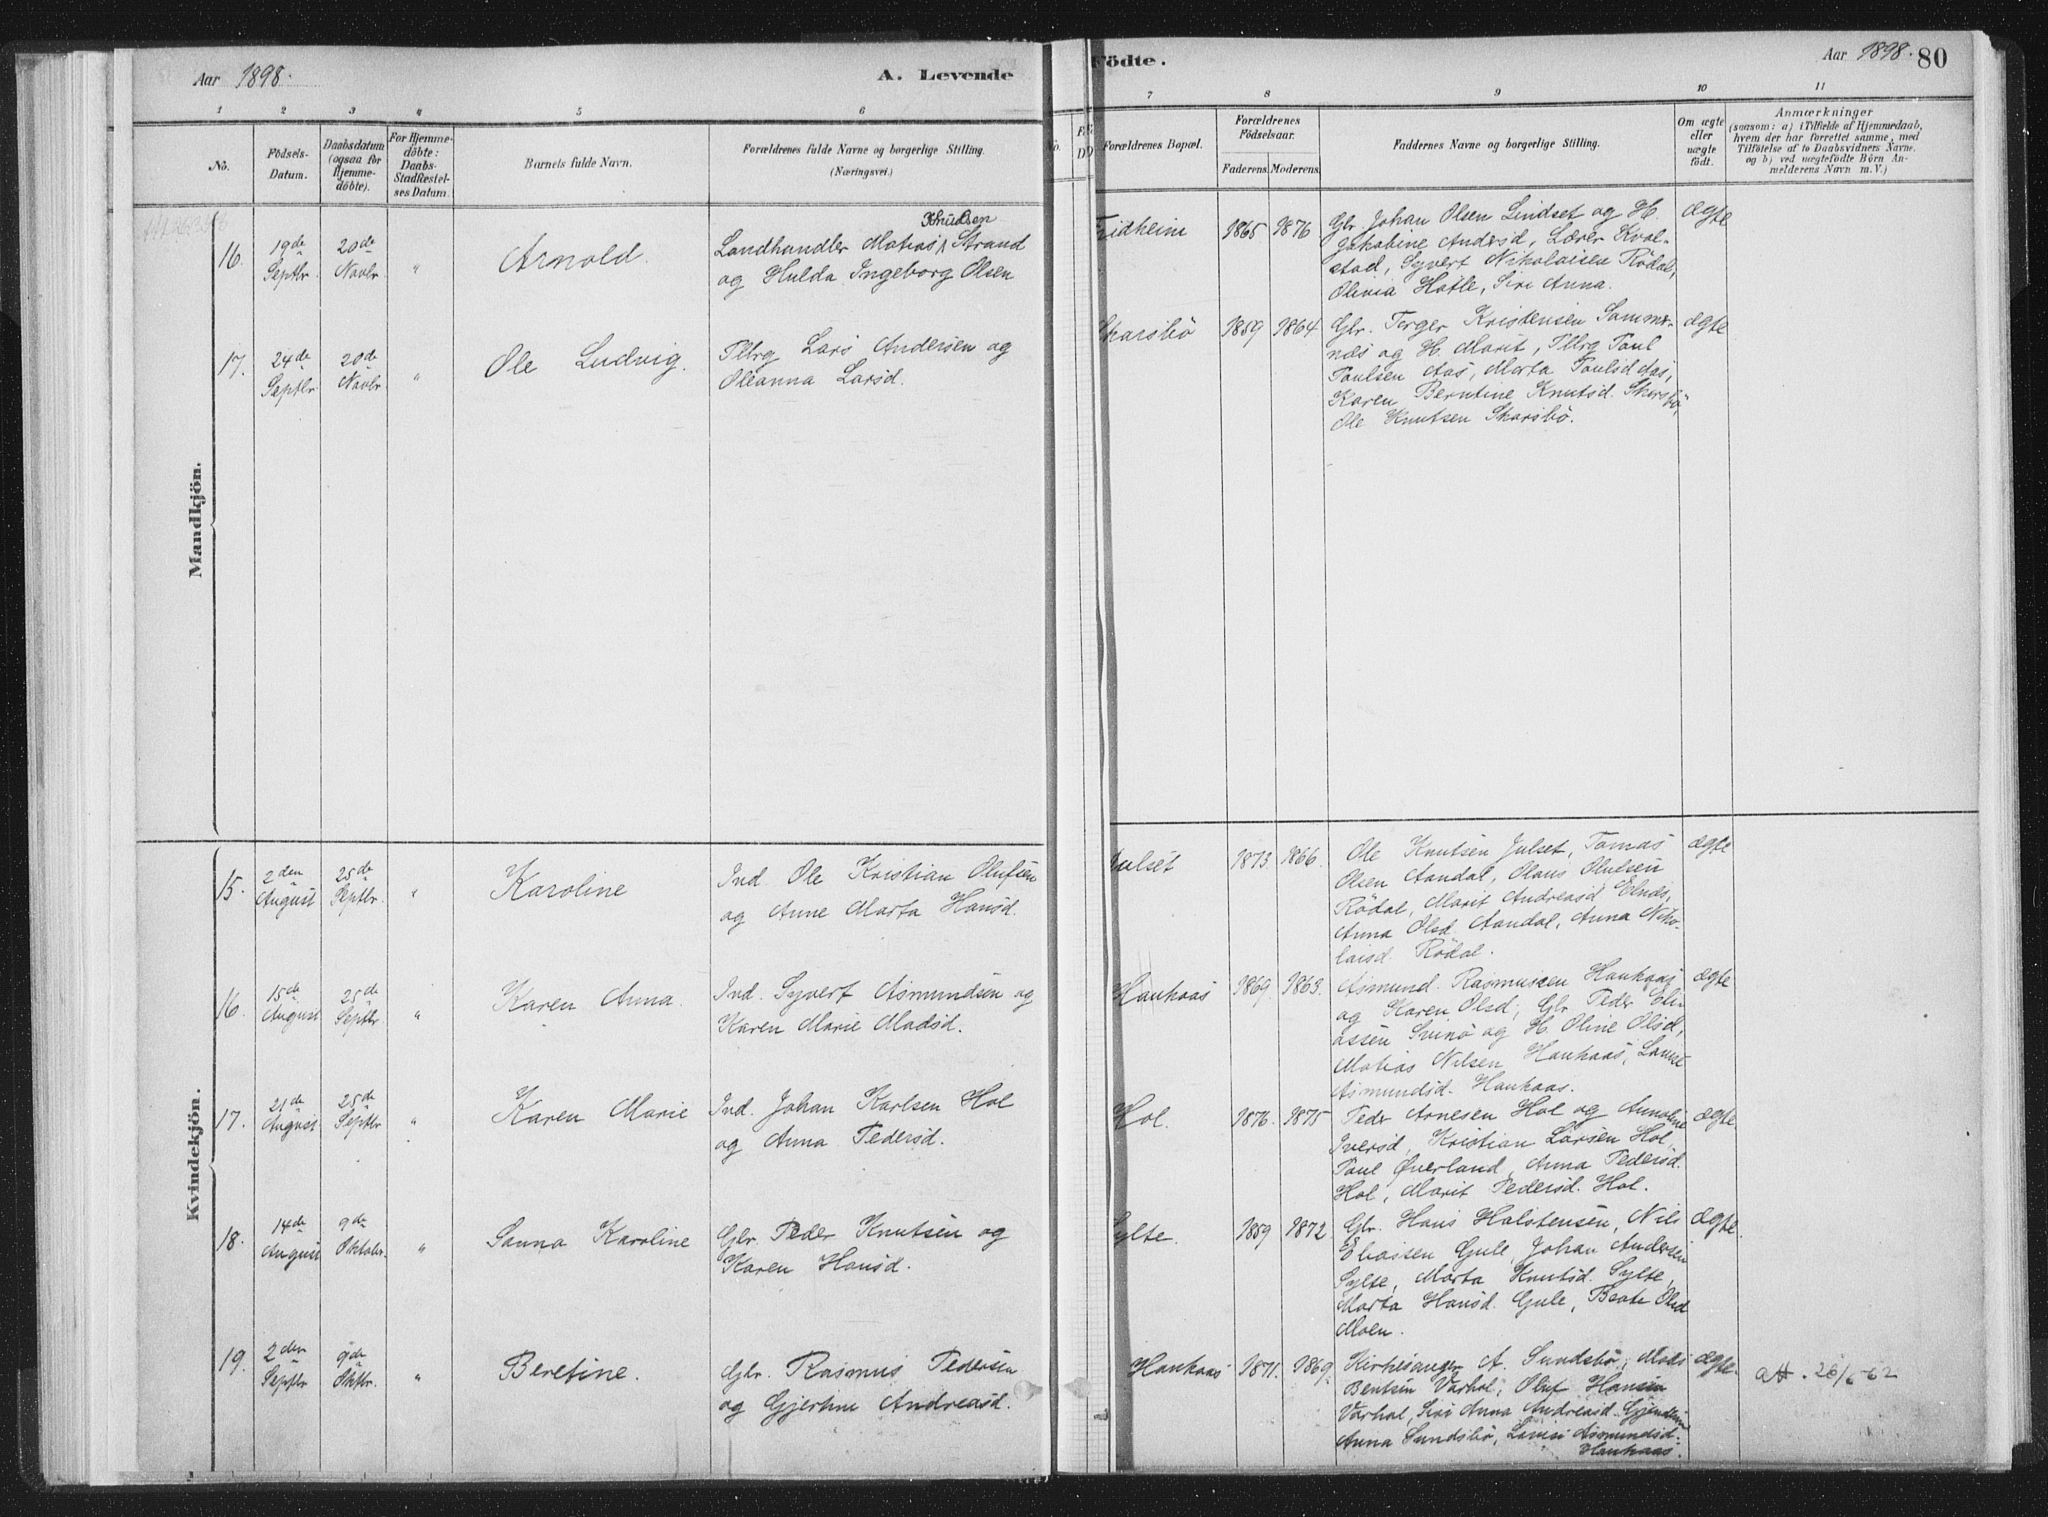 Aar 1898.
A. Levende
Födte.
Aar 1898. 80
1 2 3 4 5 6
7 8 9 10 11
No.
Födsels-
Datum.
Daabsdatum
(ogsaa for
Hjemme-
döbte).
For Hjemme-
döbte:
Daabs-
Stadfæstel-
ses Datum.
Barnets fulde Navn.
Forældrenes fulde Navne og borgerlige Stilling.
(Næringsvei.)
Forældrenes Bopæl.
Forældrenes
Födselsaar.
Faderens. Moderens.
Faddernes Navne og borgerlige Stilling.
Om ægte
eller
uægte
födt.
Anmærkninger
(saasom: a) i Tilfælde af Hjemmedaab,
hvem der har forrettet samme, med
Tilföielse af to Daabsvidners Navne.
og b) ved uægtefödte Börn An-
melderens Navn m.V.)
Mandkjön.
16.
19de
Septbr.
20de
Novbr
"
Arnold.
Knudsen
Landhandler Matias Strand
og Hulda Ingeborg Olsen
Fridheim
1865 1876
Gbr Johan Olsen Lindset og H.
Jakobine Andersd, Lærer Kval-
stad, Syvert Nikolaisen Rödal,
Olivia Hatle, Siri Anna.
ægte
17.
24de
Septbr
20de
Novbr
"
Ole Ludvig.
Tllrg Lars Andersen og
Oleanna Larsd.
Skarsbö
1859 1864
Gbr. Terger Kristensen Sammer-
næs og H. Marit, Tllrg Paul
Paulsen Aas, Marta Paulsd Aas,
Karen Berntine Knutsd. Skarsbö,
Ole Knutsen Skarsbö.
ægte
Kvindekjön.
15.
2den
August
25de
Septbr.
"
Karoline
Ind Ole Kristian Olufsen
og Anne Marta Hansd.
Julset
1873 1866.
Ole Knutsen Julset, Tomas
Olsen Aandal, Mons Olufsen
Rödal, Marit Andreasd Elnæs,
Anna Olsd. Aandal, Anna Niko-
laisd. Rödal.
ægte
16.
15de
August
25de
Septbr.
"
Karen Anna.
Ind. Syvert Asmundsen og
Karen Marie Madsd.
Haukaas
1869 1863.
Asmund. Rasmussen Haukaas
og Karen Olsd, Gbr Peder Eli-
assen Svinö og H. Oline Olsd,
Matias Nilsen Haukaas,
Asmundsd. Haukaas.
ægte
17.
21de
August.
25de
Septbr
"
Karen Marie
Ind. Johan Karlsen Hol
og Anna Pedersd.
Hol.
1876. 1875
Peder Arnesen Hol og Annoline
Iversd, Kristian Larsen Hol,
Paul Øverland, Anna Pedersd.
Hol, Marit Pedersd. Hol.
ægte.
18.
14de
August
9de
Oktobr.
"
Sanna Karoline
Gbr. Peder Knutsen og
Karen Hansd.
Sylte.
1859 1872
Gbr. Hans Halstensen, Nils
Eliassen Gule, Johan Andersen
Sylte, Marta Knutsd. Sylte,
Marta Hansd. Gule, Beate Olsd
Moen.
ægte.
19.
2den
Septbr
9de
Oktbr.
"
Beretine.
Gbr. Rasmus Pedersen
og Gjertine Andreasd.
Haukaas
1871. 1869.
Kirkesanger A. Sundsbö, Mads
Bentsen Varhol, Oluf Hansen
Varhol, Siri Anna Andreasd. Gjendem
Anna Sundsbö, Asmundsd.
Haukaas.
ægte.
att. 26/6-62